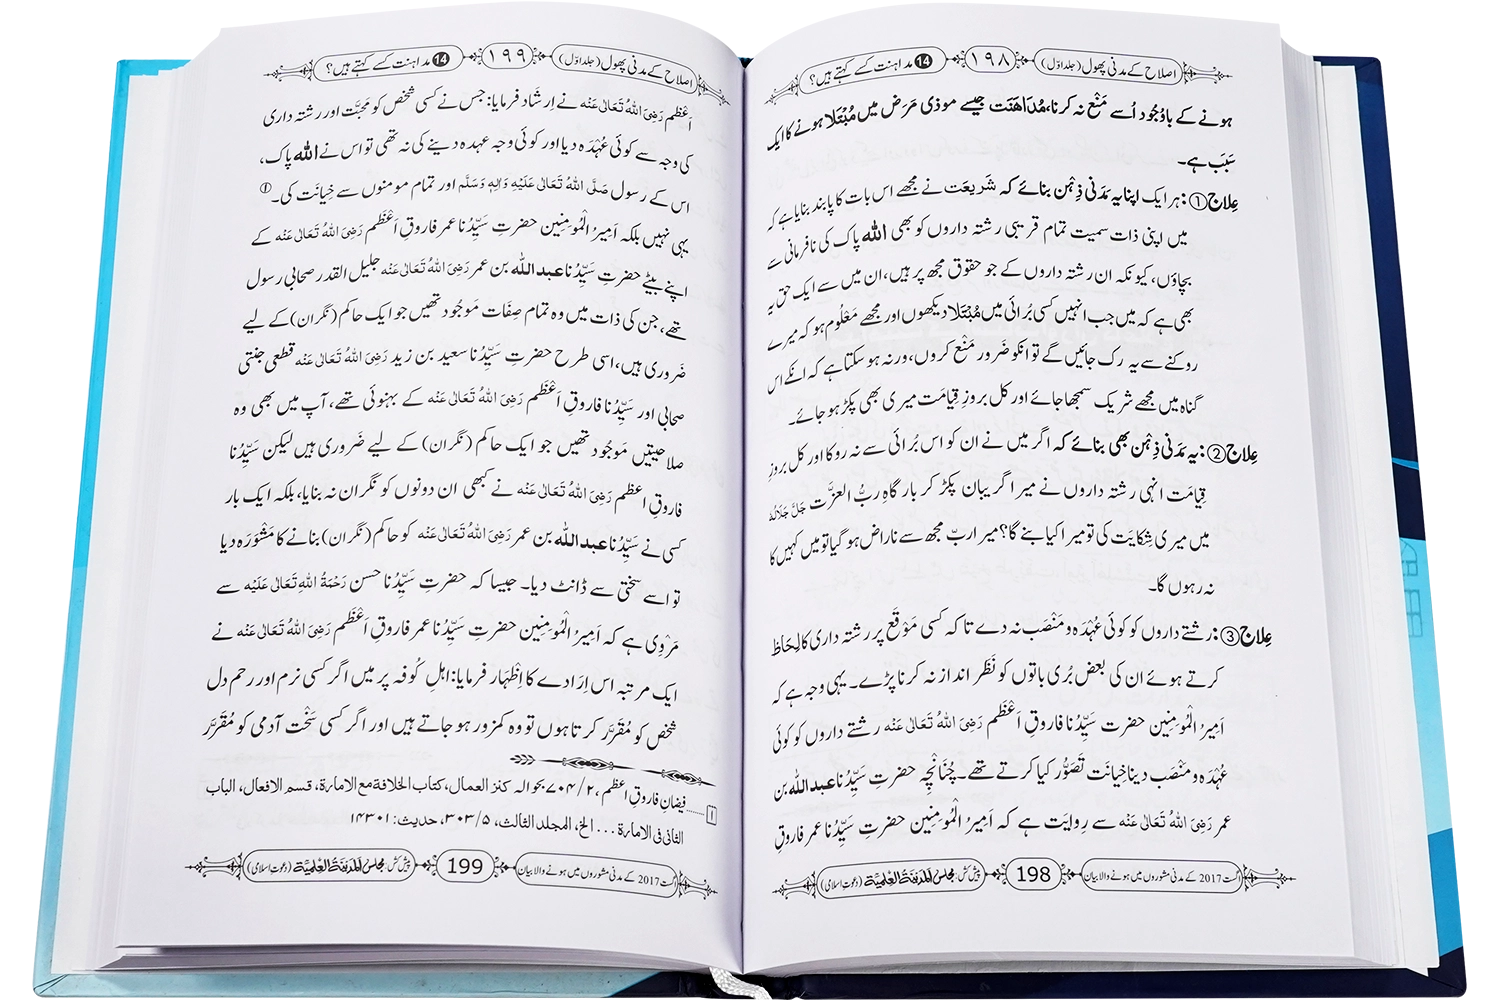 اصلاح کے مدنی پھول (جلد اوّل)
۱۹۸
14 مداہنت کسے کہتے ہیں؟
ہونے کے باوُجُود اُسے مَنْع نہ کرنا، مُدَاھَنَت جیسے موذی مَرَض میں مُبْتَلا ہونے کا ایک
سَبَب ہے۔
عِلاج①: ہر ایک اپنا یہ مَدَنی ذِہْن بنائے کہ شَرِیعَت نے مجھے اس بات کا پابند بنایا ہے کہ
میں اپنی ذات سمیت تمام قریبی رشتہ داروں کو بھی اللہ پاک کی نافرمانی سے
بچاؤں، کیونکہ ان رشتہ داروں کے جو حقوق مجھ پر ہیں، ان میں سے ایک حق یہ
بھی ہے کہ میں جب انہیں کسی بُرائی میں مُبْتَلا دیکھوں اور مجھے مَعْلُوم ہو کہ میرے
روکنے سے یہ رک جائیں گے تو انکو ضَرور مَنْع کروں، ورنہ ہو سکتا ہے کہ انکے اس
گناہ میں مجھے شریک سمجھا جائے اور کل بروزِ قِیامَت میری بھی پکڑ ہو جائے۔
عِلاج②: یہ مَدَنی ذِہْن بھی بنائے کہ اگر میں نے ان کو اس بُرائی سے نہ روکا اور کل بروزِ
قِیامَت انہی رشتہ داروں نے میرا گریبان پکڑ کر بارگاہِ ربُّ العزَّت جَلَّ جَلَالُہٗ
میں میری شِکایَت کی تو میرا کیا بنے گا؟ میرا ربّ مجھ سے ناراض ہو گیا تو میں کہیں کا
نہ رہوں گا۔
عِلاج③: رشتے داروں کو کوئی عُہْدَہ و مَنْصَب نہ دے تاکہ کسی مَوْقَع پر رشتہ داری کا لِحَاظ
کرتے ہوئے ان کی بعض بُری باتوں کو نَظَر انداز نہ کرنا پڑے۔ یہی وجہ ہے کہ
اَمِیرُ الْمُومِنِین حضرت سَیِّدُنا فاروقِ اَعْظَم رَضِیَ اللہُ تَعَالٰی عَنْہ رشتے داروں کو کوئی
عُہْدَہ و مَنْصَب دینا خِیانَت تَصَوُّر کیا کرتے تھے۔ چُنَانْچِہ حضرتِ سَیِّدُنا عبد اللہ بن
عمر رَضِیَ اللہُ تَعَالٰی عَنْہ سے رِوایَت ہے کہ اَمِیرُ الْمُومِنِین حضرت سَیِّدُنا عمر فاروقِ
اگست 2017 کے مدنی مشوروں میں ہونے والا بیان
198
پیش کش: مجلس المدینۃ العلمیۃ (دعوتِ اسلامی)
اصلاح کے مدنی پھول (جلد اوّل)
۱۹۹
14 مداہنت کسے کہتے ہیں؟
اَعْظَم رَضِیَ اللہُ تَعَالٰی عَنْہ نے اِرشَاد فرمایا: جس نے کسی شخص کو مَحَبَّت اور رشتہ داری
کی وجہ سے کوئی عُہْدَہ دیا اور کوئی وجہ عہدہ دینے کی نہ تھی تو اس نے اللہ پاک،
اس کے رسول صَلَّی اللہُ تَعَالٰی عَلَیْہِ وَاٰلِہٖ وَسَلَّم اور تمام مومنوں سے خِیانَت کی۔
یہی نہیں بلکہ اَمِیرُ الْمُومِنِین حضرتِ سَیِّدُنا عمر فاروقِ اَعْظَم رَضِیَ اللہُ تَعَالٰی عَنْہ کے
اپنے بیٹے حضرتِ سَیِّدُنا عبد اللہ بن عمر رَضِیَ اللہُ تَعَالٰی عَنْہ جلیل القدر صحابی رسول
تھے، جن کی ذات میں وہ تمام صِفَات مَوجُود تھیں جو ایک حاکم (نگران) کے لیے
ضَروری ہیں، اسی طرح حضرتِ سَیِّدُنا سعید بن زید رَضِیَ اللہُ تَعَالٰی عَنْہ قطعی جنتی
صحابی اور سَیِّدُنا فاروقِ اَعْظَم رَضِیَ اللہُ تَعَالٰی عَنْہ کے بہنوئی تھے، آپ میں بھی وہ
صلاحیتیں مَوجُود تھیں جو ایک حاکم (نگران) کے لیے ضَروری ہیں لیکن سَیِّدُنا
فاروقِ اعظم رَضِیَ اللہُ تَعَالٰی عَنْہ نے کبھی ان دونوں کو نگران نہ بنایا، بلکہ ایک بار
کسی نے سَیِّدُنا عبد اللہ بن عمر رَضِیَ اللہُ تَعَالٰی عَنْہ کو حاکم (نگران) بنانے کا مَشْوَرَہ دیا
تو اسے سختی سے ڈانٹ دیا۔ جیسا کہ حضرتِ سَیِّدُنا حسن رَحْمَۃُ اللہِ تَعَالٰی عَلَیْہ سے
مَرْوِی ہے کہ اَمِیرُ الْمُومِنِین حضرتِ سَیِّدُنا عمر فاروقِ اَعْظَم رَضِیَ اللہُ تَعَالٰی عَنْہ نے
ایک مرتبہ اس اِرَادے کا اِظْہَار فرمایا: اہلِ کُوفہ پر میں اگر کسی نرم اور رحم دل
شخص کو مُقَرَّر کرتا ہوں تو وہ کمزور ہو جاتے ہیں اور اگر کسی سَخْت آدمی کو مُقَرَّر
۱ ......فیضانِ فاروقِ اعظم، ۲/ ۷۰۴ بحوالہ کنز العمال، کتاب الخلافۃ مع الامارۃ، قسم الافعال، الباب
الثانی فی الامارۃ ... الخ، المجلد الثالث، ۵/ ۳۰۳، حدیث: ۱۴۳۰۱
اگست 2017 کے مدنی مشوروں میں ہونے والا بیان
199
پیش کش: مجلس المدینۃ العلمیۃ (دعوتِ اسلامی)